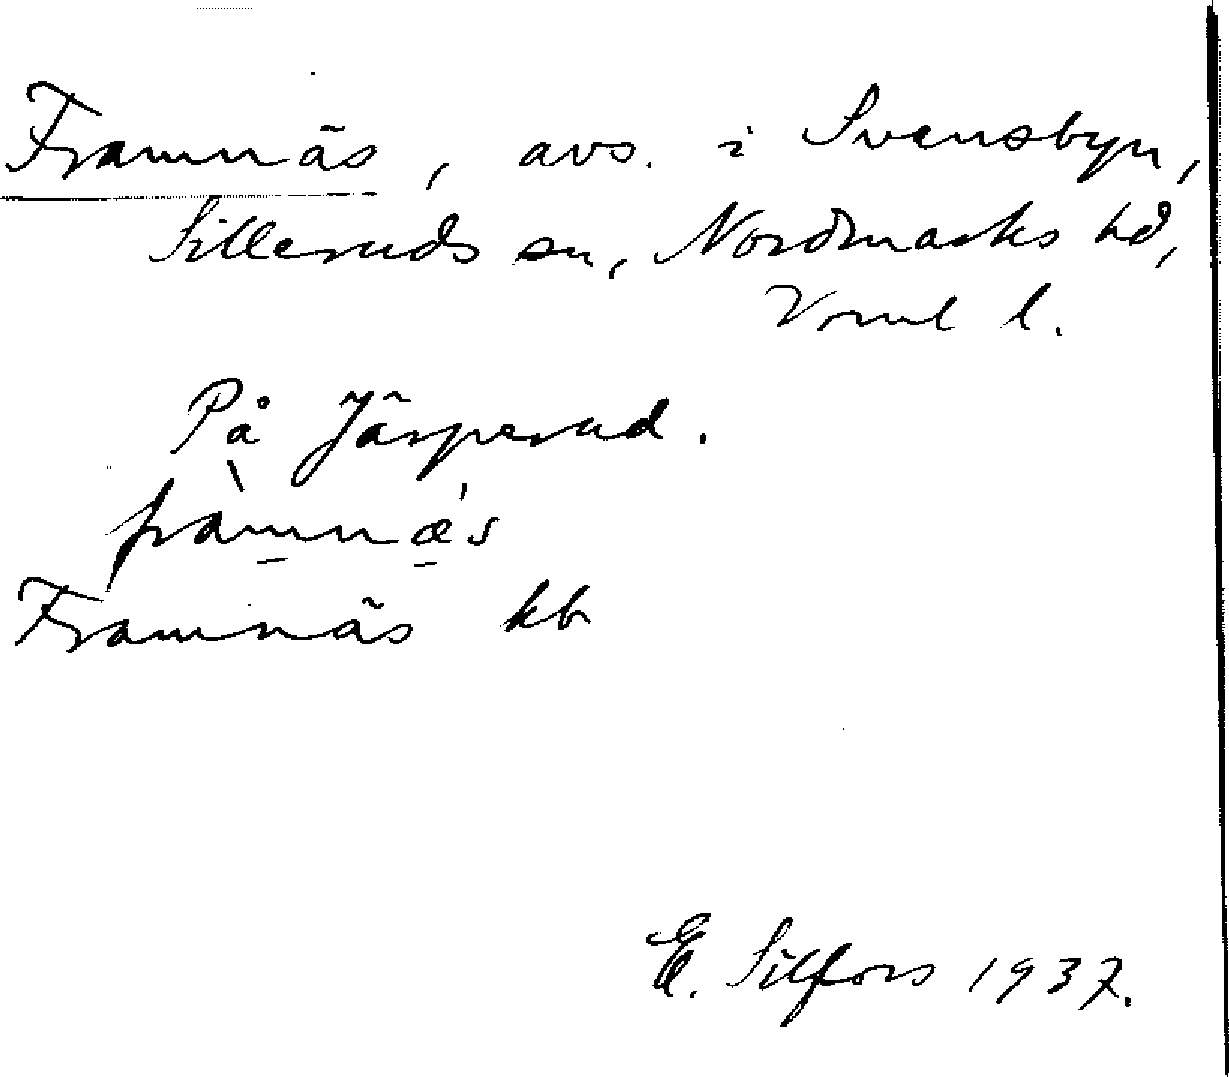 Framnäs, avs. i Svensbyn,
Silleruds sn, Nordmarks hd,
Vrml l.
På Järperud.
fràmnæ's
Framnäs kb
E. Silfors 1937.